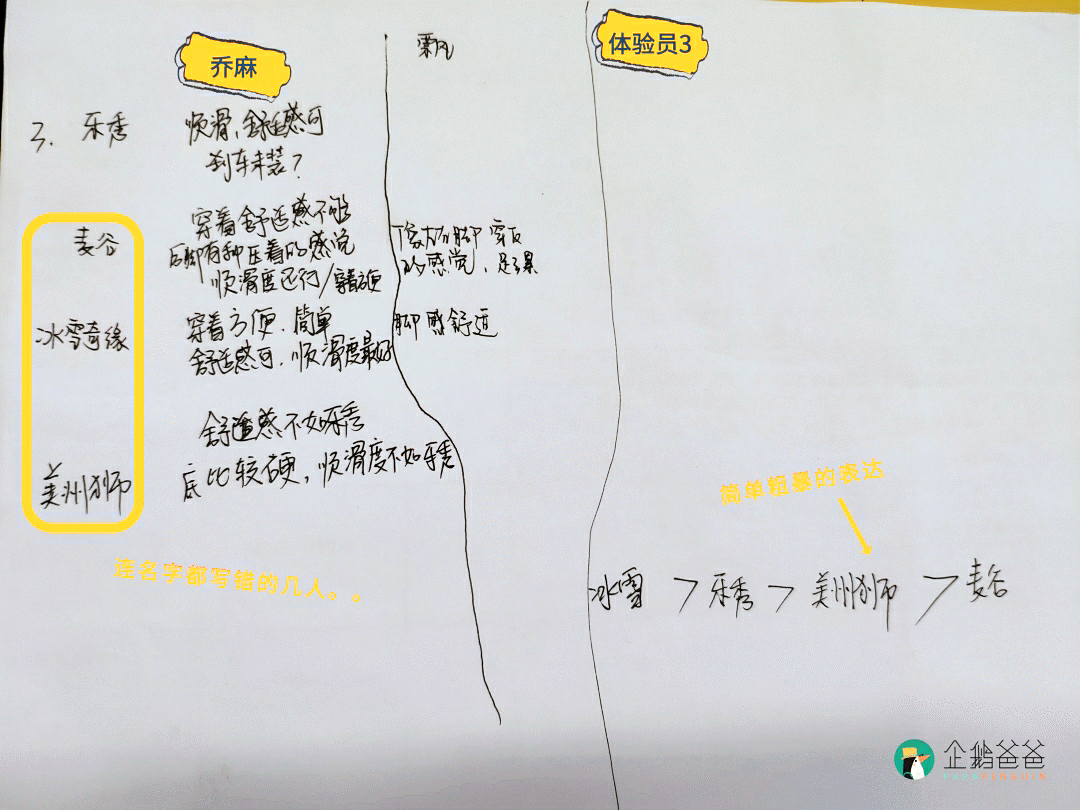 乔麻
飘
体验员3
3. 乐秀
顺滑,舒适感可
刹车未装?
麦谷
穿着舒适感不够
后脚有种压着的感觉
顺滑度还行/穿着方便
穿反
的感觉,
冰雪奇缘
穿着方便、简单
舒适感可、顺滑度最好
脚感舒适
舒适感不如乐秀
美州狮
底比较硬,顺滑度不如乐秀
简单粗暴的表达
连名字都写错的几人。。
冰雪 > 乐秀 > 美州狮 > 麦谷
企鹅爸爸
PAPAPENGUIN